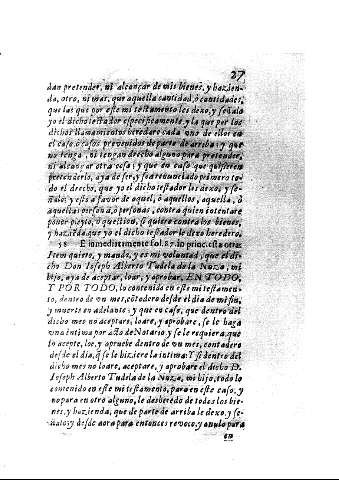 27
dan pretender, ni alcançar de mis bienes, y hazien-
da, otro, ni mas, que aquella cantidad, ò cantidades,
que las que por este mi testamento les dexo, y señalo
yo el dicho testador especificamente, y la que por los
dichos llamamientos heredare cada uno de ellos en
el caso, ò casos prevenidos de parte de arriba: y que
no tenga, ni tengan drecho alguno para pretender,
ni alcançar otra cosa; y que en caso que quisieren
pretenderlo, aya de ser, y sea renunciado primero to-
do el drecho, que yo el dicho testador les dexo, y se-
ñalo; y esto a favor de aquel, ò aquellos, aquella, ò
aquellas persona, ò personas, contra quien intentare
poner pleyto, ò question, ò quiera contra los bienes,
y hazienda, que yo el dicho testador le dexo heredero.
58 E inmediatamente fol. 87. in princ. esta otra:
Item quiero, y mando, y es mi voluntad, que el di-
cho Don Ioseph Alberto Tudela de la Nuza, mi
hijo, aya de aceptar, loar, y aprobar, EN TODO,
Y POR TODO, lo contenido en este mi testamen-
to, dentro de un mes, cõtedero desde el dia de mi fin,
y muerte en adelante; y que en caso, que dentro del
dicho mes no aceptare, loare, y aprobare, se le haga
una intima por acto de Notario, y se le requiera, que
lo acepte, loe, y apruebe dentro de un mes, contadero
desde el dia, q̃ se le hiziere la intima: Y si dentro del
dicho mes no loare, aceptare, y aprobare el dicho D.
Ioseph Alberto Tudela de la Nuza, mi hijo, todo lo
contenido en este mi testamento, para en este caso, y
no para en otro alguno, le desheredo de todos los bie-
nes, y hazienda, que de parte de arriba le dexo, y se-
ñalo; y desde aora para entonces revoco, y anulo para
en